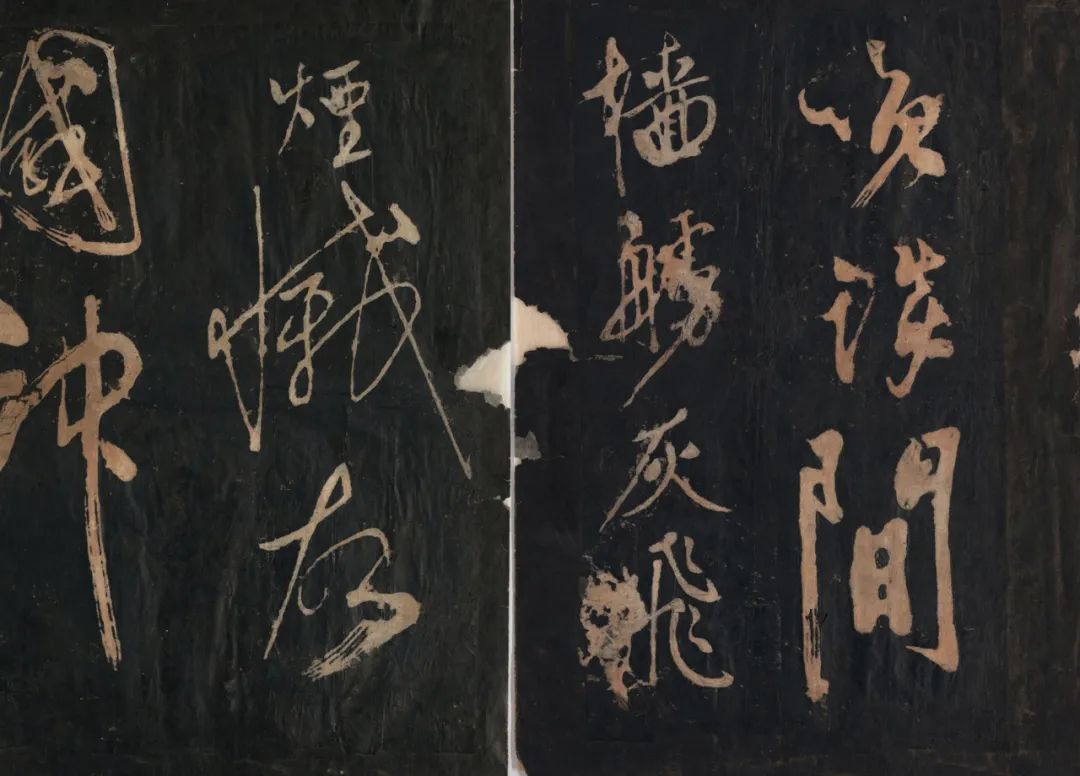 咲談間
檣艣灰飛
煙滅故
國神